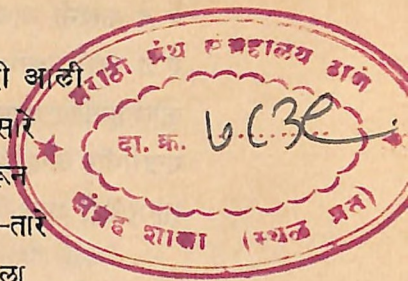 ही आली
सारे
रून
-तारे
ला
मराठी ग्रंथ संग्रहालय ठाणे
दा. क्र. ७८३९
संग्रह शाखा (स्थळ प्रत)